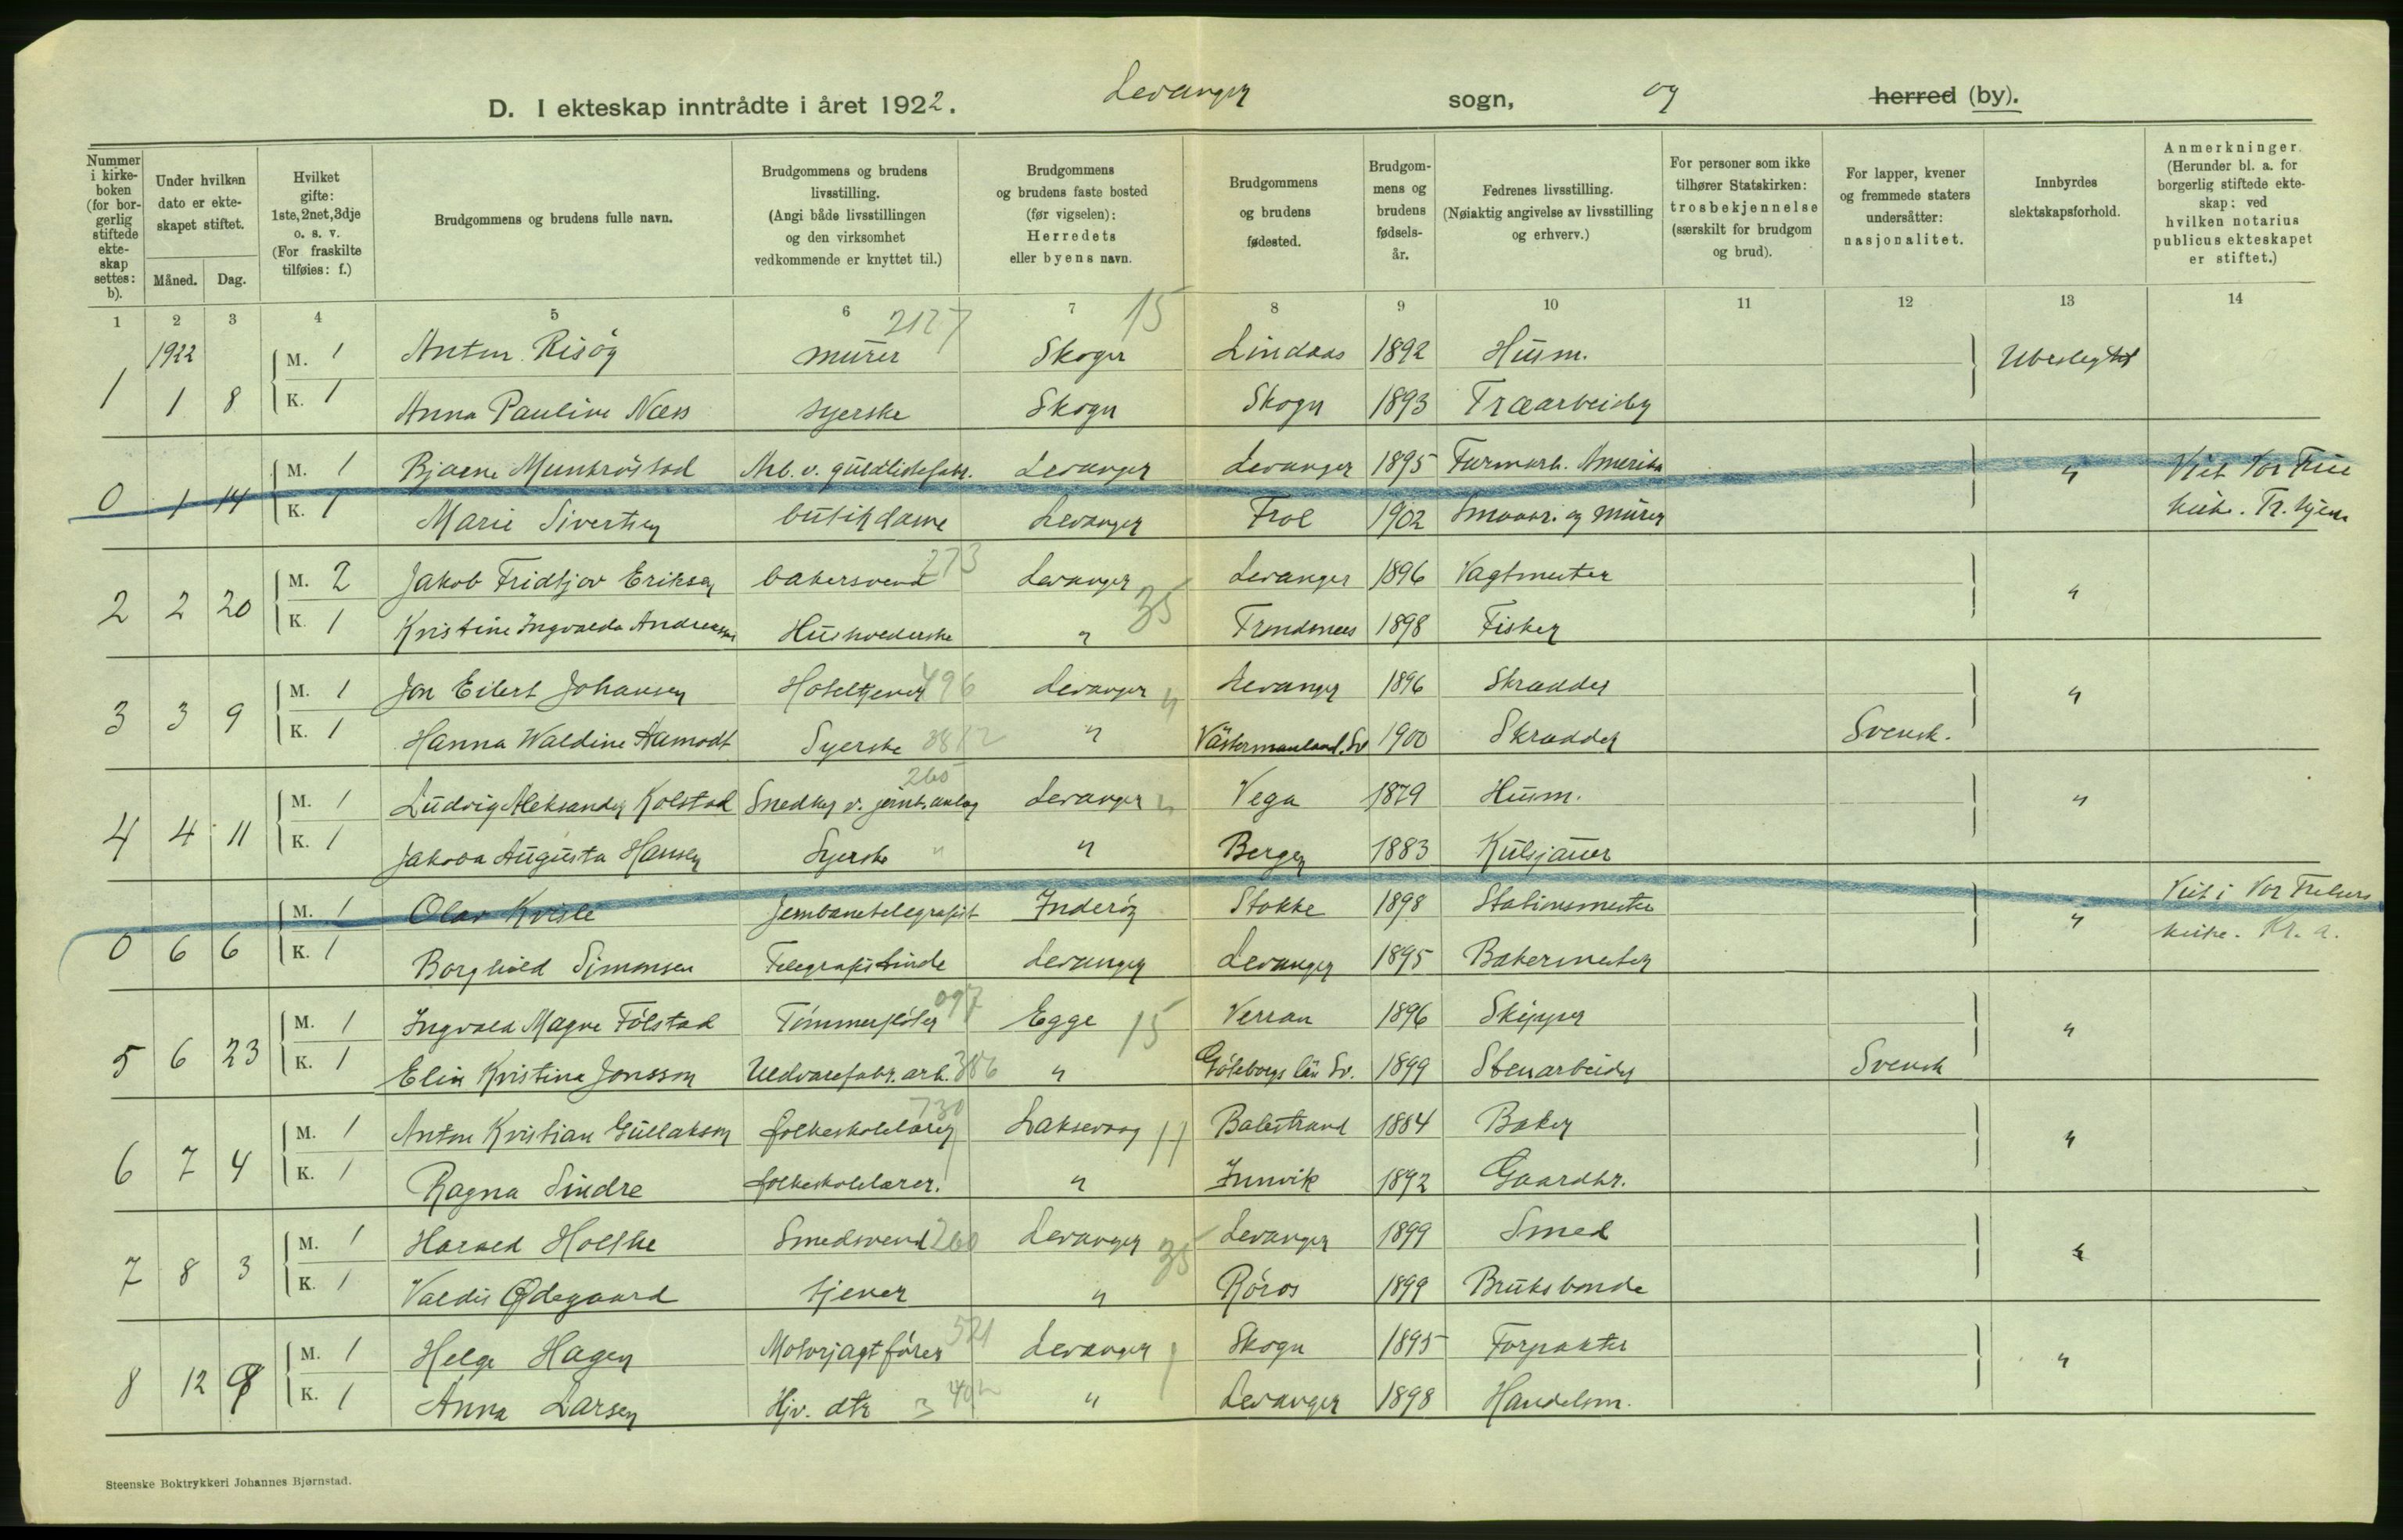 D. I ekteskap inntrådte i året 1922. Levanger sogn, og herred (by).
Nummer i kirkeboken (for borgerlig stiftede ekteskap settes: b).
Under hvilken dato er ekteskapet stiftet.
Måned. Dag.
Hvilket gifte: 1ste, 2net, 3dje o. s. v. (For fraskilte tilføies: f.)
Brudgommens og brudens fulle navn.
Brudgommens og brudens livsstilling. (Angi både livsstillingen og den virksomhet vedkommende er knyttet til.)
Brudgommens og brudens faste bosted (før vigselen): Herredets eller byens navn.
Brudgommens og brudens fødested.
Brudgommens og brudens fødselsår.
Fedrenes livsstilling. (Nøiaktig angivelse av livsstilling og erhverv.)
For personer som ikke tilhører Statskirken: trosbekjennelse (særskilt for brudgom og brud).
For lapper, kvener og fremmede staters undersåtter: nasjonalitet.
Innbyrdes slektskapsforhold.
Anmerkninger. (Herunder bl. a. for borgerlig stiftede ekteskap: ved hvilken notarius publicus ekteskapet er stiftet.)
1 2 3 4 5 6 7 8 9 10 11 12 13 14
1922 M. 1 Anton Risöy murer 2127 Skogn 15 Lindaas 1892 Husm. Ubeslegtet
1 1 8 K. 1 Anna Pauline Næss syerske Skogn Skogn 1893 Træarbeider
M. 1 Bjarne Munkröstad Arb. v. guldlistefabr. Levanger Levanger 1895 Farmarb. Amerika " Viet Vor Frue
0 1 14 K. 1 Marie Sivertsen butikdame Levanger Frol 1902 Smaabr. og murer kirke. Tr.hjem
M. 2 Jakob Fridtjov Eriksen bakersvend 273 Levanger 35 Levanger 1896 Vagtmester "
2 2 20 K. 1 Kristine Ingvalda Andreassen Husholderske " Trondenes 1898 Fisker
M. 1 Jon Eilert Johansen Hoteltjener 496 Levanger " Levanger 1896 Skrædder "
3 3 9 K. 1 Hanna Waldine Aamodt Syerske " Västermanland, Sv 1900 Skrædder Svensk.
M. 1 Ludvig Aleksander Kolstad Snedker v. jernb.anlæg 260 Levanger " Vega 1879 Husm. "
4 4 11 K. 1 Jakova Augusta Hansen Syerske " " Bergen 1883 Kulsjauer
M. 1 Olav Kvisle Jernbanetelegrafist Inderöy Stokke 1898 Stationsmester " Viet i Vor Frelsers
0 6 6 K. 1 Borghild Simonsen Telegrafistinde Levanger Levanger 1895 Bakermester kirke. Kr. a.
M. 1 Ingvald Magne Fölstad Tömmerflöter 097 Egge 15 Verran 1896 Skipper "
5 6 23 K. 1 Elin Kristina Jonsson Uldvarefabr.arb. 386 " Göteborgs län Sv. 1899 Stenarbeider Svensk
M. 1 Anton Kristian Gullaksen folkeskolelærer 730 Laksevaag 11 Balestrand 1884 Baker "
6 7 4 K. 1 Ragna Sindre folkeskolelærer. " Innvik 1892 Gaardbr.
M. 1 Harald Holthe Smedsvend 260 Levanger 35 Levanger 1899 Smed "
7 8 3 K. 1 Valdis Ødegaard tjener " Röros 1899 Bruksbonde
M. 1 Helge Hagen Motorjagtförer 521 Levanger Skogn 1895 Forpakter "
8 12 9 K. 1 Anna Larsen Hjv. dtr " Levanger 1898 Handelsm.
Steenske Boktrykkeri Johannes Bjørnstad.